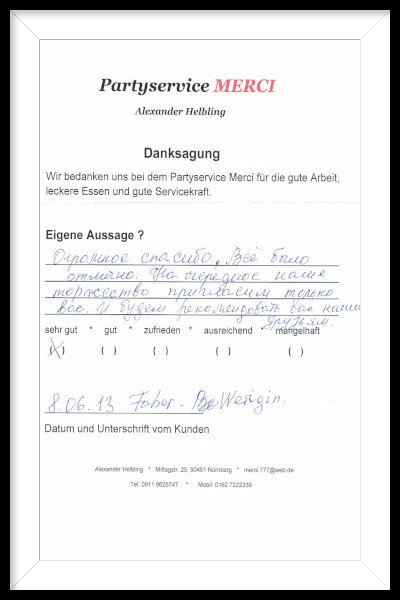 Partyservice MERCI
Alexander Helbling
Danksagung
Wir bedanken uns bei dem Partyservice Merci für die gute Arbeit,
leckere Essen und gute Servicekraft.
Eigene Aussage ?
Огромное спасибо, Всё было
отлично. На очередное наше
торжество пригласим только
Вас. И будем рекомендовать вас нашим
друзьям.
sehr gut * gut * zufrieden * ausreichend * mangelhaft
(X) ( ) ( ) ( ) ( )
8.06.13 Faber - Werigin.
Datum und Unterschrift vom Kunden
Alexander Helbling * Mittagstr. 25, 90451 Nürnberg * merci.777@web.de
Tel: 0911 9626747 * Mobil: 0162 7222339